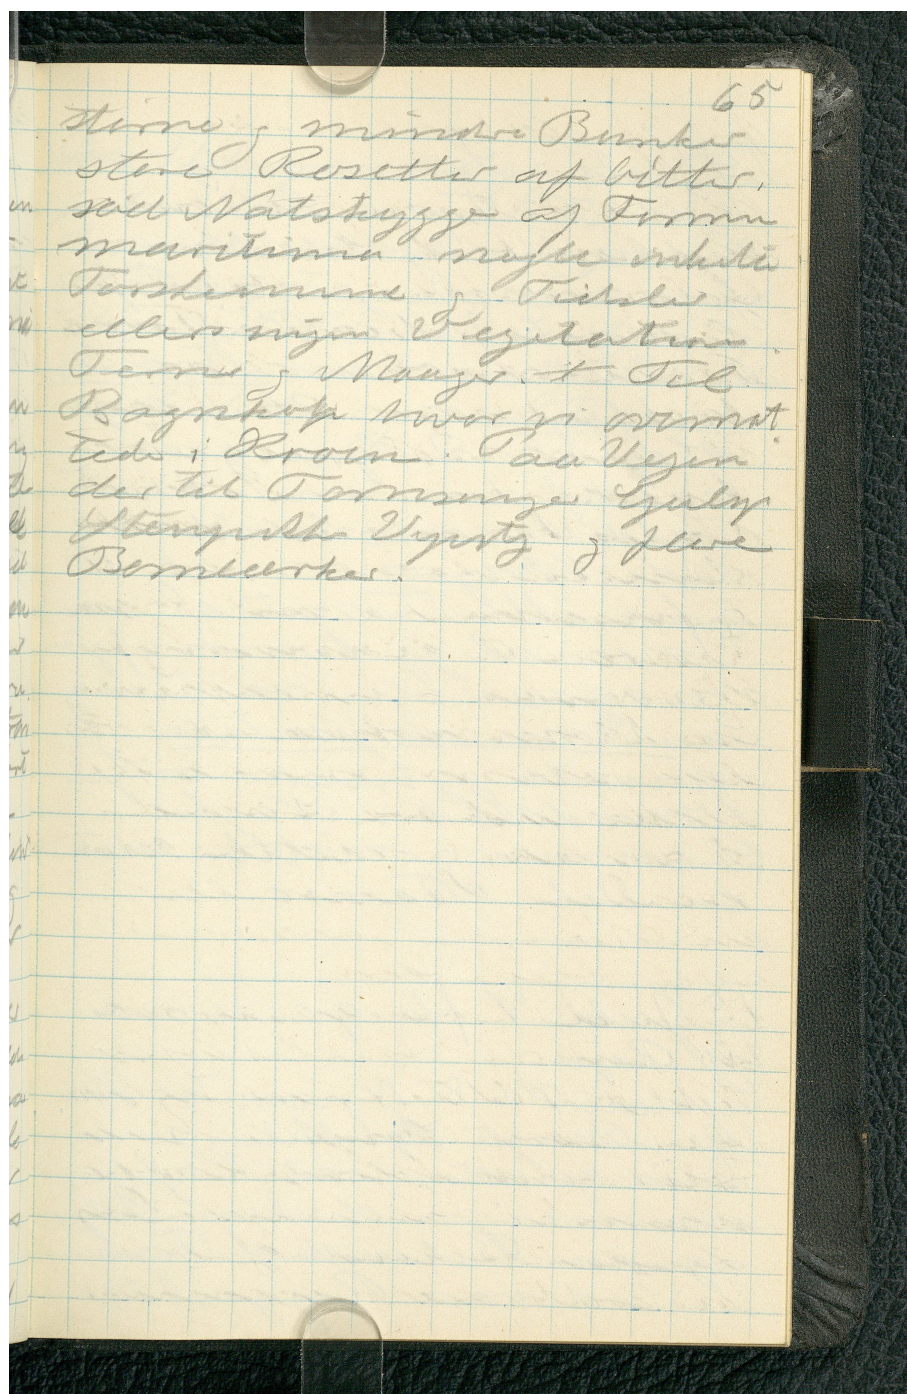 65
større og mindre Bunker
store Rosetter af bitter.
sød Natskygge af
maritima nogle enkelte
Torskemund og Tidsler
ellers ingen Vegetation.
Terner og Maager. + Til
Bagnkop hvor vi overnat
tede i Kroen. Paa Vejen
der til Tornsanger Gulsp
Vipstj og flere
Bomlærker.